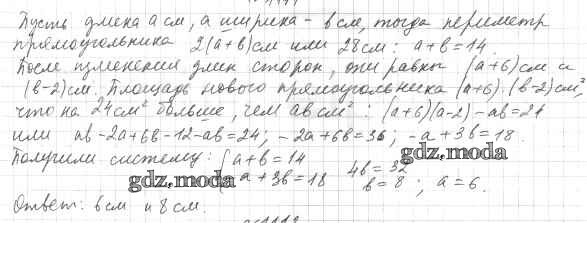 Пусть длина a см, а ширина – b см, тогда периметр
прямоугольника 2(a+b)см или 28 см: a+b=14.
После изменения длин сторон, они равны (a+6)см и
(b-2)см. Площадь нового прямоугольника (a+6)·(b-2)см²,
что на 24 см² больше, чем ab см²: (a+6)(a-2)-ab=24
или ab-2a+6b-12-ab=24; -2a+6b=36; -a+3b=18.
Получили систему: { a+b=14 4b=32
-a+3b=18 b=8; a=6.
gdz.moda
gdz.moda
Ответ: 6 см и 8 см.